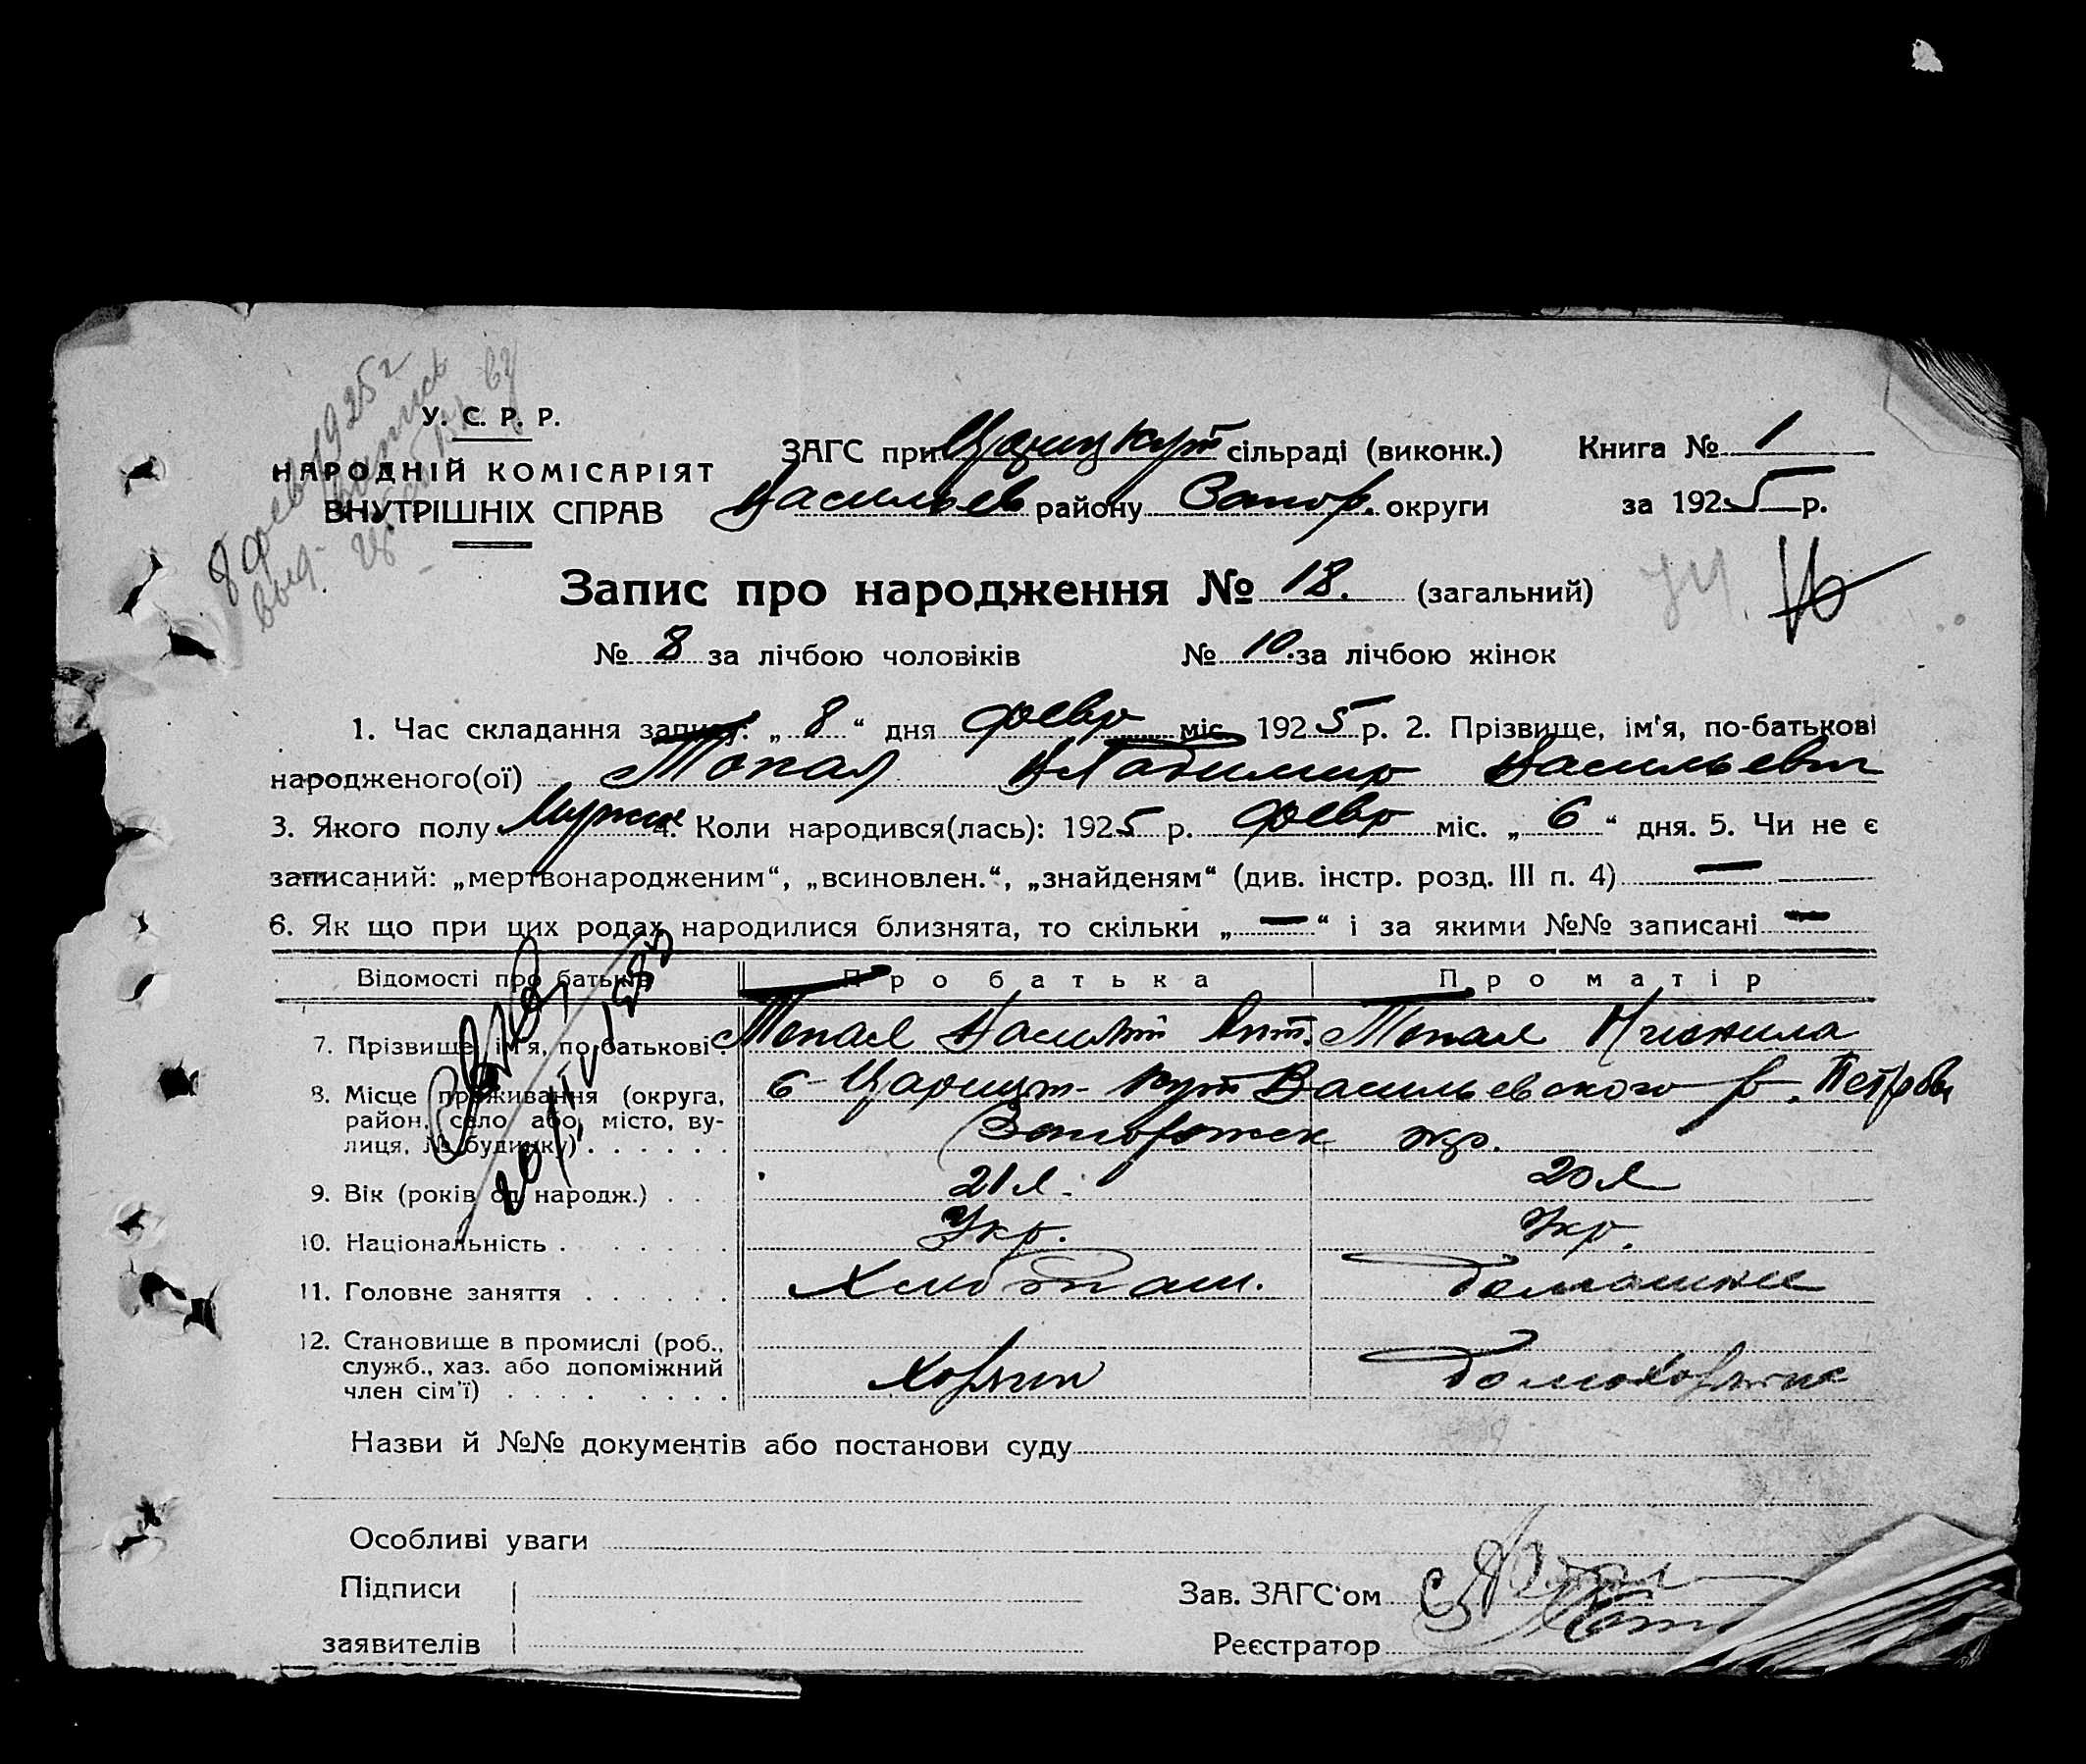 8 февр 1925 г
У. С. Р. Р.
НАРОДНІЙ КОМІСАРІЯТ
ВНУТРІШНІХ СПРАВ
ЗАГС при Цариц Кут сільраді (виконк.) Книга № 1
Васильев району Запор. округи за 1925 р.
Запис про народження № 18. (загальний)
№ 8 за лічбою чоловіків № 10. за лічбою жінок
1. Час складання запису: „ 8 “ дня февр міс. 1925 р. 2. Прізвище, ім'я, по-батькові
народженого(ої) Топал Владимир Васильевич
3. Якого полу Мужск 4. Коли народився(лась): 1925 р. февр міс. „ 6 “ дня. 5. Чи не є
записаний: „мертвонародженим“, „всиновлен.“, „знайденям“ (див. інстр. розд. III п. 4) —
6. Як що при цих родах народилися близнята, то скільки „ — “ і за якими №№ записані —
Відомості про батьків Про батька Про матір
7. Прізвище, ім'я, по-батькові. Топал Василий Ант. Топал
8. Місце проживання (округа, с- Царицт- Кут Васильевского р. Петровы
район, село або місто, ву-
лиця, № будинку) Запорожск окр.
9. Вік (років од народж.) 21 л. 20 л
10. Національність Укр. Укр.
11. Головне заняття Хлебопаш. Домашнее
12. Становище в промислі (роб.,
служб., хаз. або допоміжний
член сім'ї) Хозяин Домохозяйка
Назви й №№ документів або постанови суду
Особливі уваги
Підписи
Зав. ЗАГС'ом
заявителів
Реєстратор